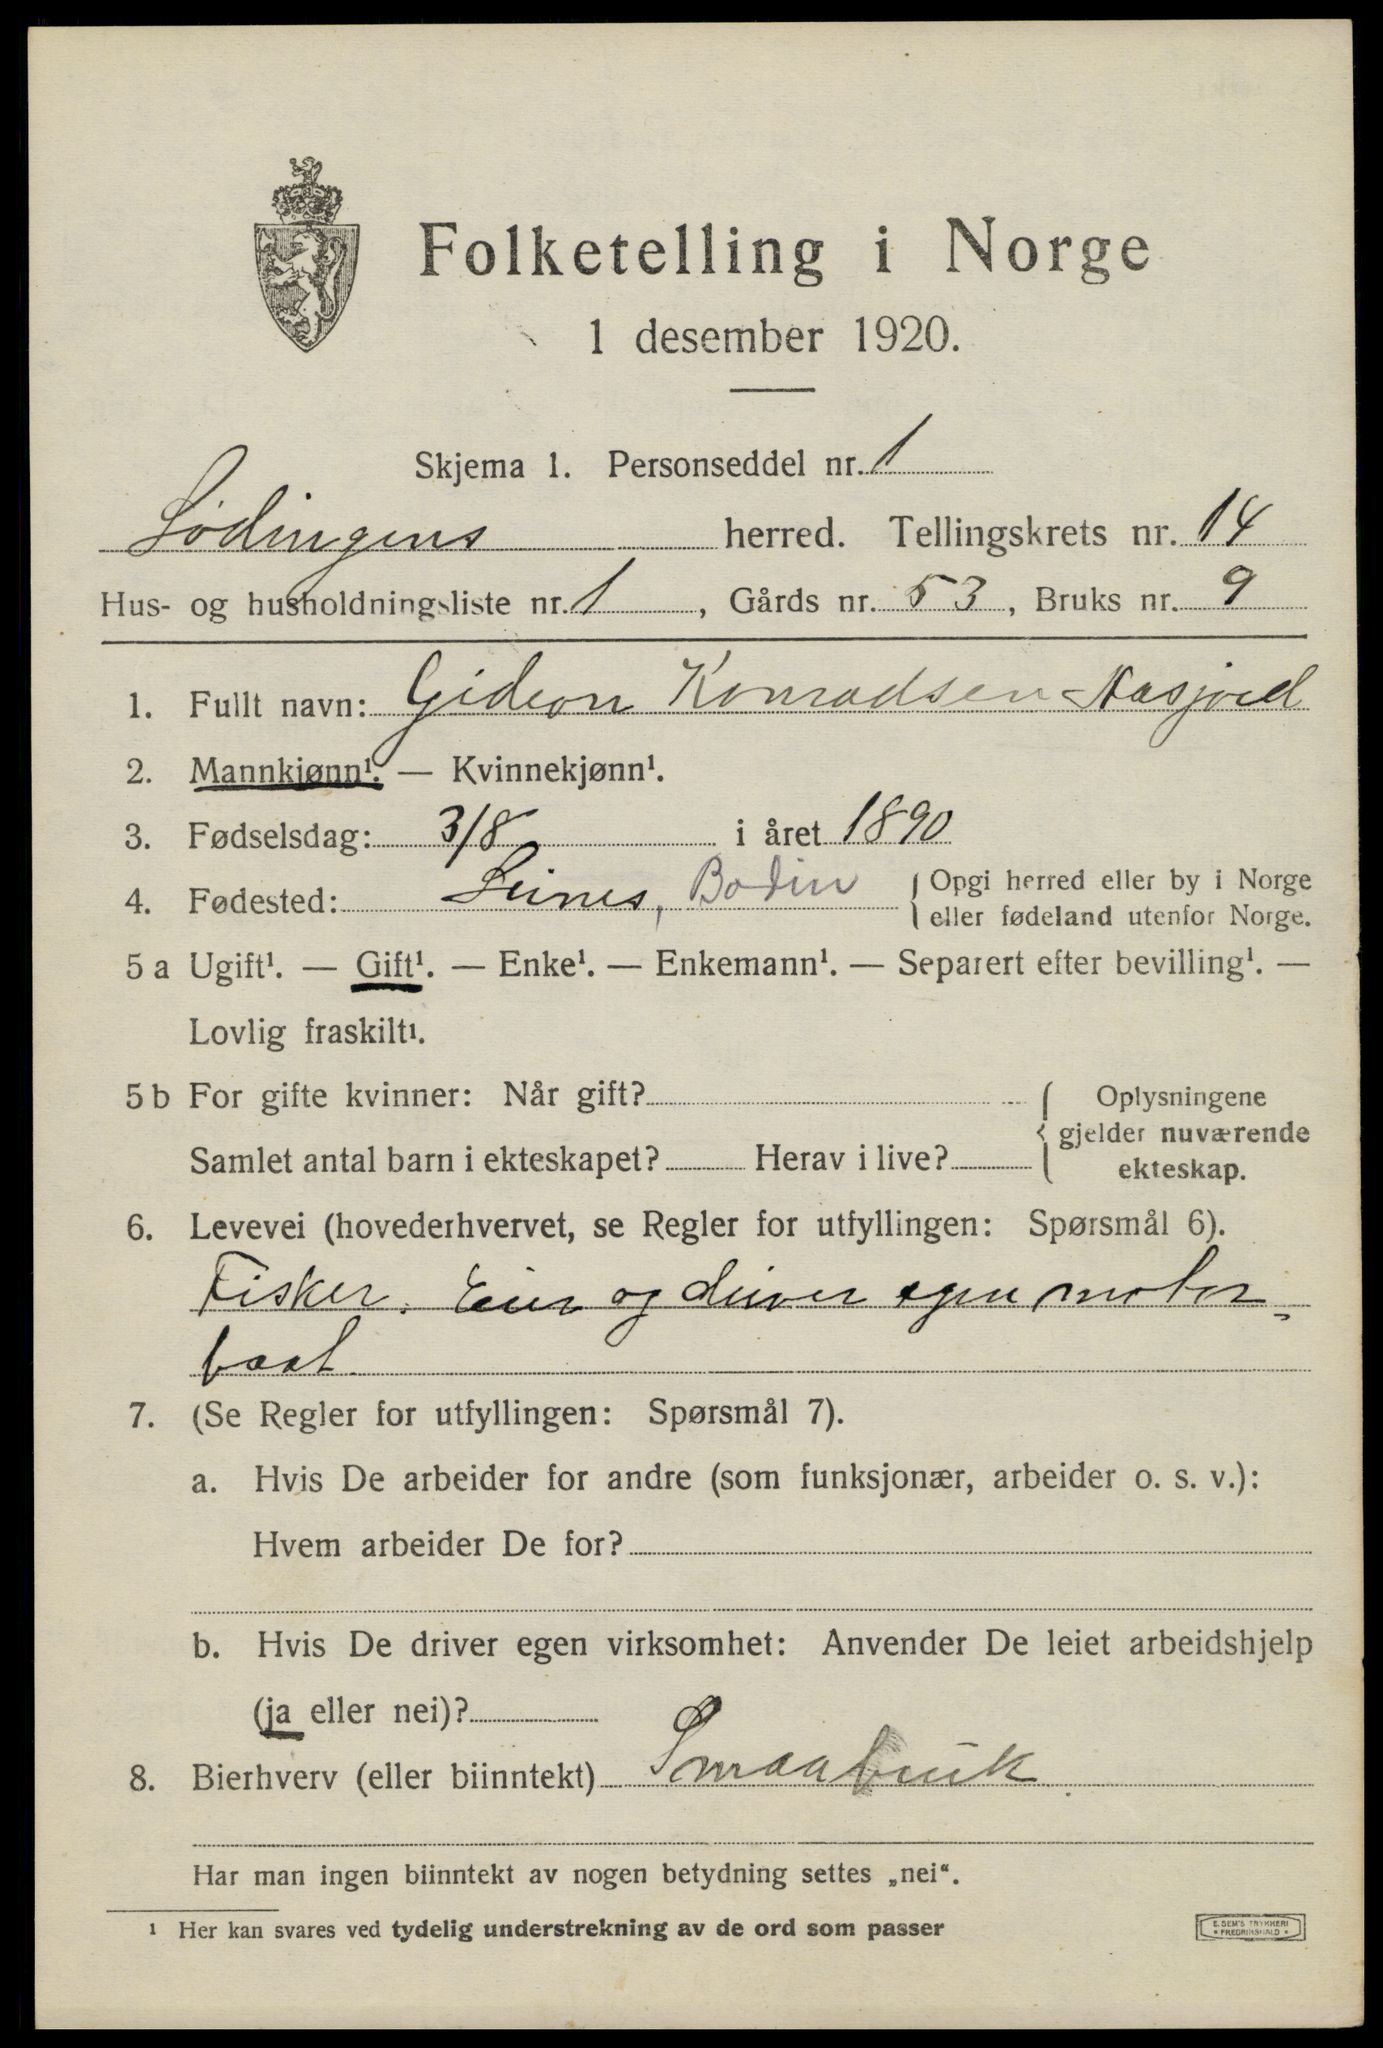 Folketelling i Norge
1 desember 1920.
Skjema 1. Personseddel nr. 1
Lødingens herred. Tellingskrets nr. 14
Hus- og husholdningsliste nr. 1, Gårds nr. 53, Bruks nr. 9
1. Fullt navn: Gideon Konradsen Aasjord
2. Mannkjønn¹. — Kvinnekjønn¹.
3. Fødselsdag: 3/8 i året 1890
4. Fødested: Leines, Bodin { Opgi herred eller by i Norge
eller fødeland utenfor Norge.
5 a Ugift¹. — Gift¹. — Enke¹. — Enkemann¹. — Separert efter bevilling¹. —
Lovlig fraskilt¹.
5 b For gifte kvinner: Når gift? { Oplysningene
gjelder nuværende
Samlet antal barn i ekteskapet? Herav i live? ekteskap.
6. Levevei (hovederhvervet, se Regler for utfyllingen: Spørsmål 6).
Fisker. Eier og driver egen motor-
baat.
7. (Se Regler for utfyllingen: Spørsmål 7).
a. Hvis De arbeider for andre (som funksjonær, arbeider o. s. v.):
Hvem arbeider De for?
b. Hvis De driver egen virksomhet: Anvender De leiet arbeidshjelp
(ja eller nei)?
8. Bierhverv (eller biinntekt) Smaabruk
Har man ingen biinntekt av nogen betydning settes „nei“.
¹ Her kan svares ved tydelig understrekning av de ord som passer
E. SEM'S TRYKKERI
• FREDRIKSHALD •